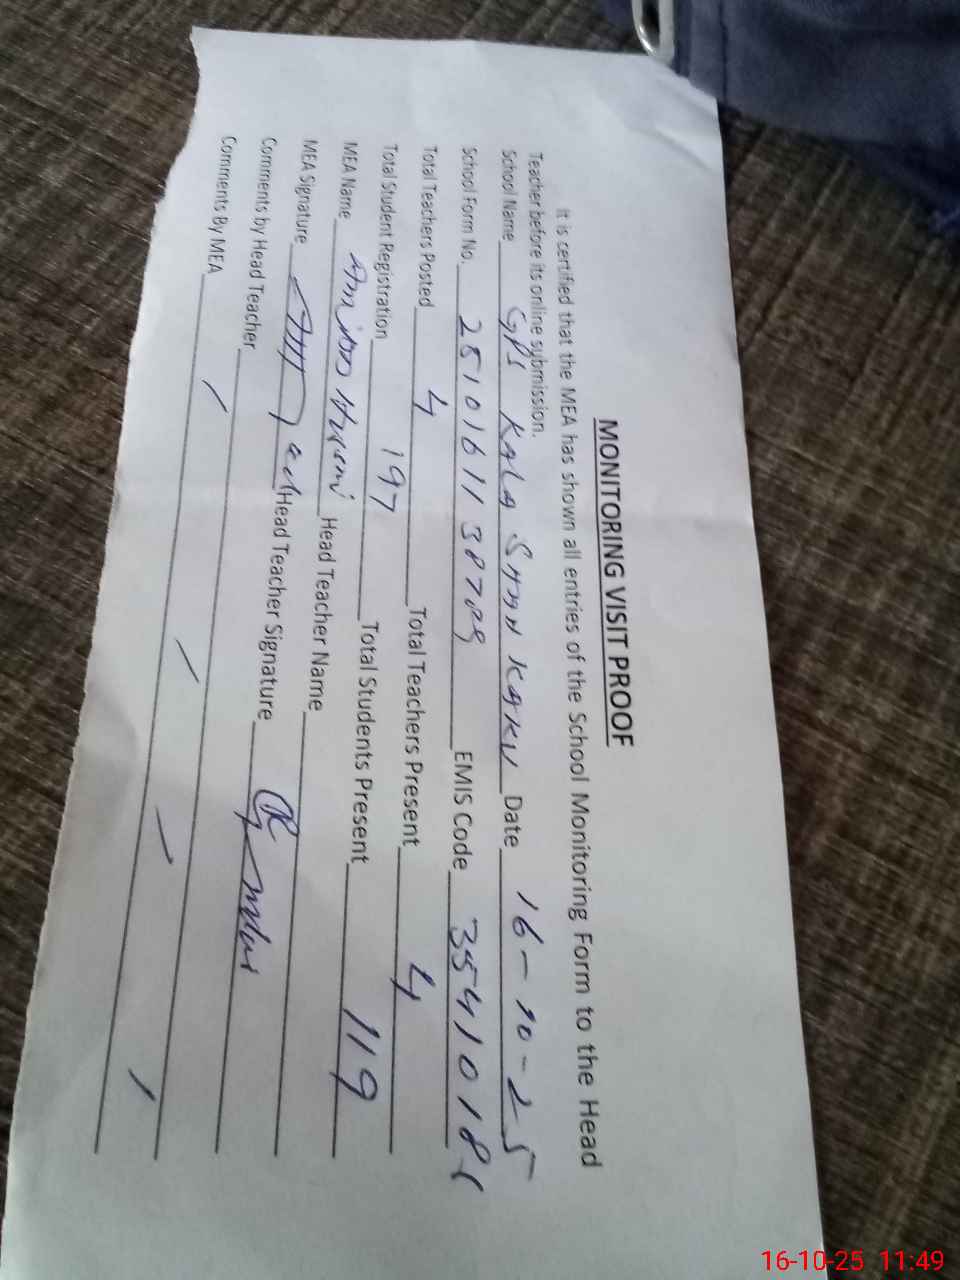 MONITORING VISIT PROOF
It is certified that the MEA has shown all entries of the School Monitoring Form to the Head
Teacher before its online submission.
School Name GPS Kala Shah Kaku Date 16-10-25
School Form No. EMIS Code
Total Teachers Posted 4 Total Teachers Present 4
Total Student Registration 197 Total Students Present 119
MEA Name Head Teacher Name
MEA Signature Head Teacher Signature
Comments by Head Teacher
Comments By MEA
16-10-25 11:49